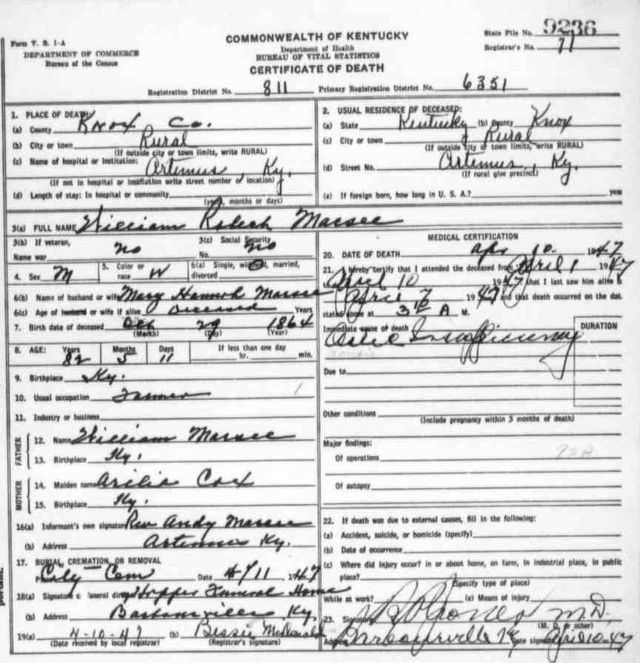 9236
Form V. S. 1-A
COMMONWEALTH OF KENTUCKY
State File No.
DEPARTMENT OF COMMERCE
Department of Health
Registrar's No. 71
Bureau of the Census
BUREAU OF VITAL STATISTICS
CERTIFICATE OF DEATH
Registration District No. 811 Primary Registration District No. 6351
1. PLACE OF DEATH
(a) County Knox Co.
(b) City or town Rural
(If outside city or town limits, write RURAL)
(c) Name of hospital or institution: Artemus Ky.
(If not in hospital or institution write street number or location)
(d) Length of stay: In hospital or community
(yrs., months or days)
2. USUAL RESIDENCE OF DECEASED:
(a) State Kentucky (b) County Knox
(c) City or town Rural
(If outside city or town limits, write RURAL)
(d) Street No. Artemus, Ky.
(If rural give precinct)
(e) If foreign born, how long in U. S. A.?
3(a) FULL NAME William Marsee
3(b) If veteran, 3(c) Social Security
Name war no No. no
4. Sex M 5. Color or race W 6(a) Single, widowed, married, divorced
6(b) Name of husband or wife Mary Hannah Marsee
6(c) Age of husband or wife if alive Deceased Years
7. Birth date of deceased Oct 29 1864
(Month) (Day) (Year)
8. AGE: Years Months Days If less than one day
82 5 11 hr. min.
9. Birthplace Ky.
10. Usual occupation Farmer
11. Industry or business
FATHER
12. Name William Marsee
13. Birthplace Ky.
MOTHER
14. Maiden name Cox
15. Birthplace Ky.
16(a) Informant's own signature Rev Andy Marsee
(b) Address Artemus Ky.
17. BURIAL, CREMATION, OR REMOVAL
Place City Cem Date 4/11 1947
18(a) Signature of funeral director Hopper Funeral Home
(b) Address Barbourville Ky.
19(a) 4-10-47 (b) Bessie
(Date received by local registrar) (Registrar's signature)
MEDICAL CERTIFICATION
20. DATE OF DEATH Apr 10 1947
21. I hereby certify that I attended the deceased from April 1 1947
April 10 1947 that I last saw him alive
April 7 1947 and that death occurred on the date
stated above at A M.
Immediate cause of death DURATION
Insufficiency
Due to
Other conditions
(Include pregnancy within 3 months of death)
Major findings:
Of operations
Of autopsy
22. If death was due to external causes, fill in the following:
(a) Accident, suicide, or homicide (specify)
(b) Date of occurrence
(c) Where did injury occur? in or about home, on farm, in industrial place, in public
place?
(Specify type of place)
While at work? (e) Means of injury
23. Signature M.D.
(M. D. or other)
Address Barbourville Ky Date signed Apr 10-47